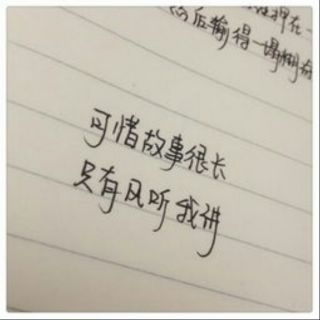 然后输得一塌糊涂
可惜故事很长
只有风听我讲